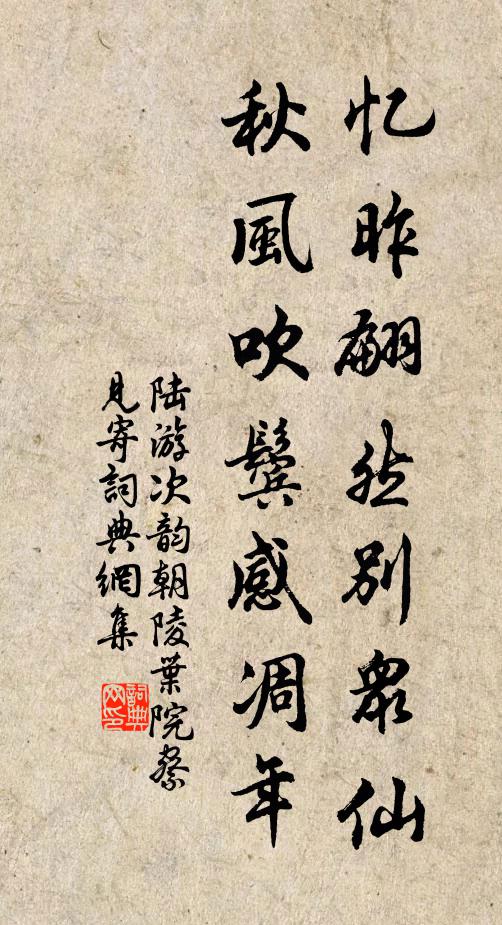 忆昨翩然别衆仙
秋風吹鬓感凋年
陆游次韵朝陵葉院察
見寄詞典網集
詞典网印